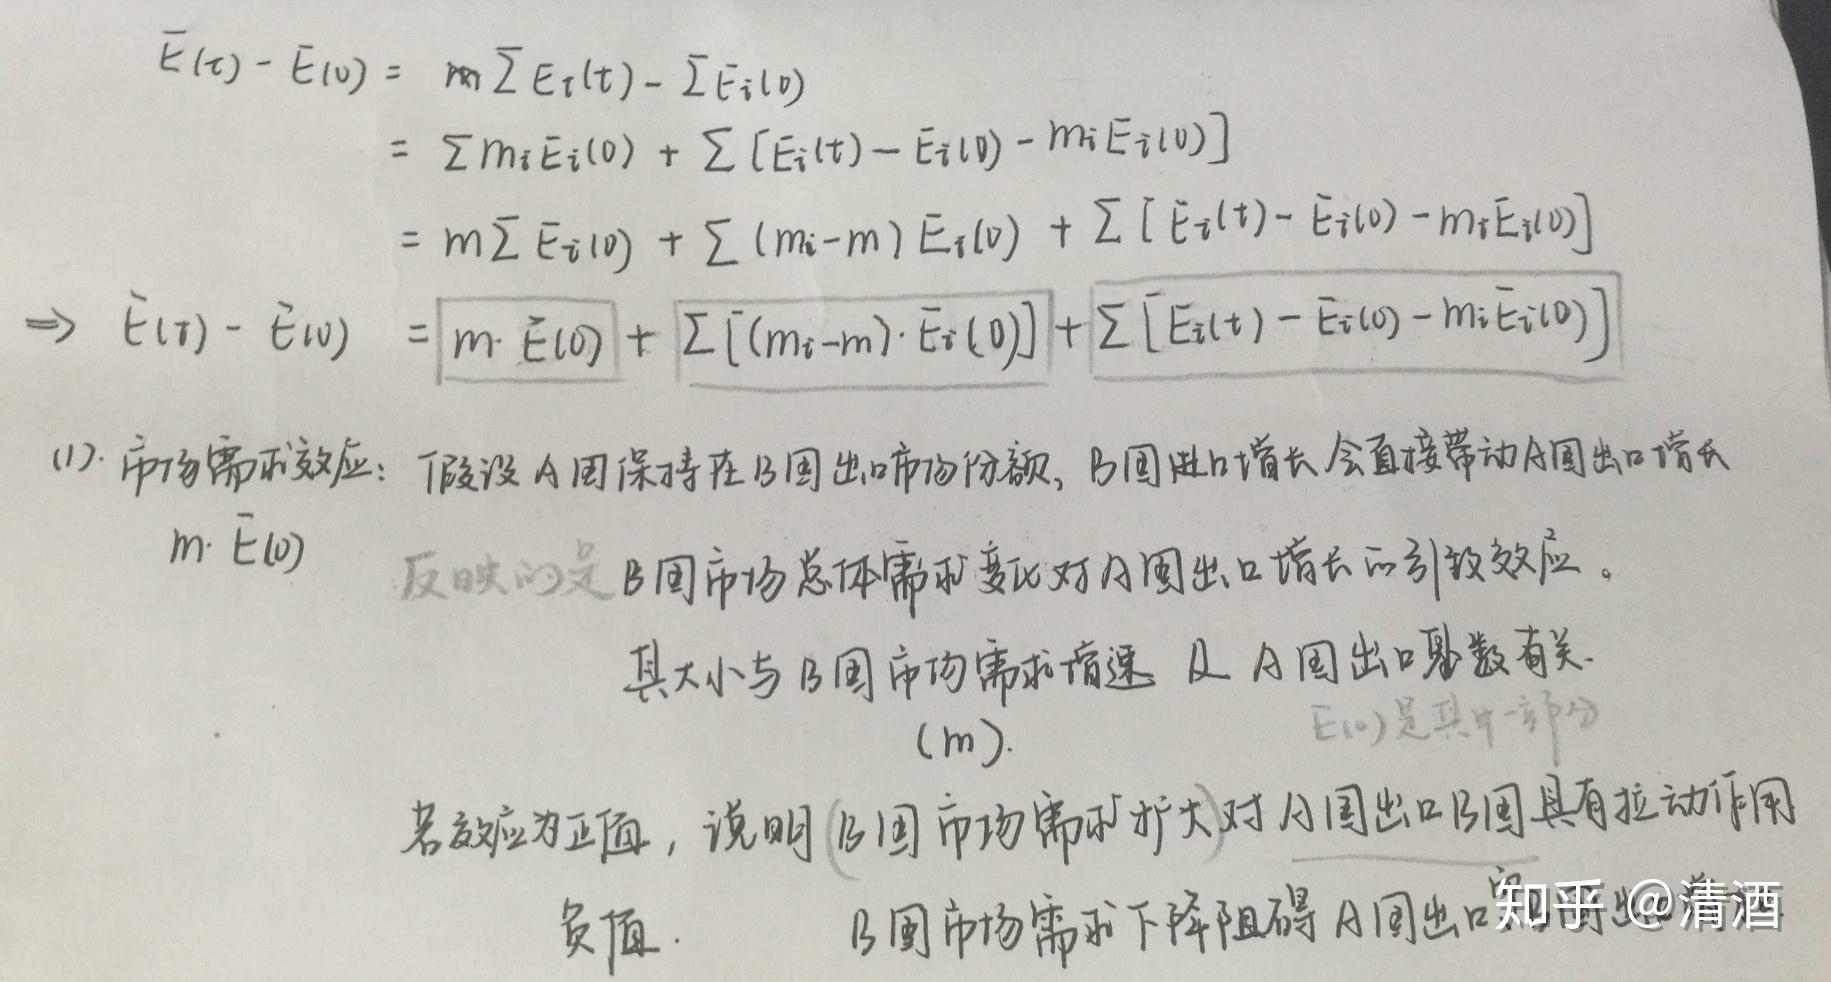 E(t) - E(0) = m∑Ei(t) - ∑Ei(0)
= ∑miEi(0) + ∑[Ei(t) - Ei(0) - miEi(0)]
= m∑Ei(0) + ∑(mi-m)Ei(0) + ∑[Ei(t) - Ei(0) - miEi(0)]
⇒ E(t) - E(0) = m·E(0) + ∑[(mi-m)·Ei(0)] + ∑[Ei(t) - Ei(0) - miEi(0)]
(1). 市场需求效应: 假设A国保持在B国出口市场份额, B国进口增长会直接带动A国出口增长
m·E(0)
反映的是B国市场总体需求变化对A国出口增长的引致效应。
其大小与B国市场需求增速 及 A国出口基数有关.
(m). E(0)是其中一部分
若效应为正值, 说明(B国市场需求扩大)对A国出口B国具有拉动作用
负值. B国市场需求下降阻碍A国出口
知乎 @清酒